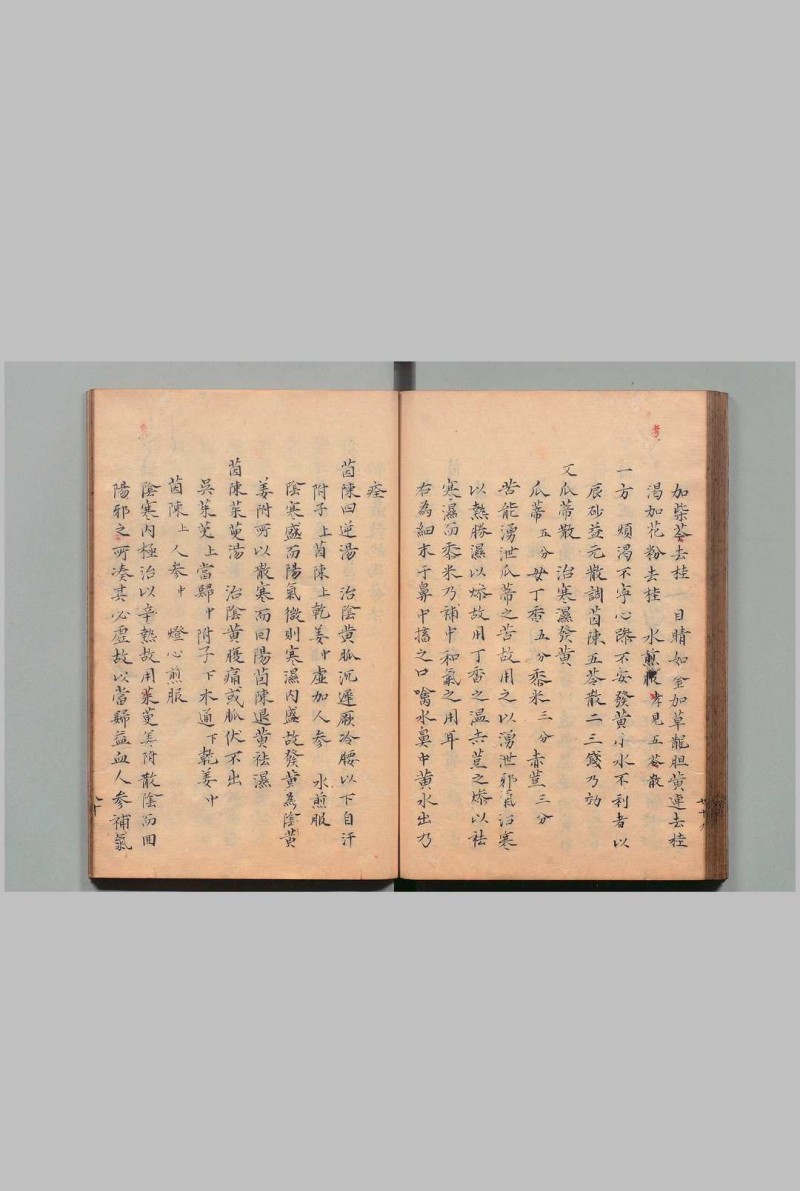 加柴苓去桂　目睛如金加草龍胆黄連去桂
渴加花粉去桂　水煎服　考見五苓散
一方　煩渴不寧心躁不安發黄小水不利者以
辰砂益元散調茵陳五苓散二三錢乃効
又瓜蒂散　治寒濕發黄
瓜蒂五分母丁香五分黍米三分赤荳三分
苦能湧泄瓜蒂之苦故用之以湧泄邪氣治寒
以熱勝濕以燥故用丁香之温赤荳之燥以祛
寒濕而黍米乃補中和氣之用耳
右為細末于鼻中搐之口噙水鼻中黄水出乃
痊
茵陳四逆湯　治陰黄脈沉遲厥冷腰以下自汗
附子上茵陳上乾姜中虛加人參　水煎服
陰寒盛而陽氣微則寒濕内盛故發黄為陰黄
姜附所以散寒而回陽茵陳退黄祛濕
茵陳茱萸湯　治陰黄腹痛或脈伏不出
吳茱萸上當歸中附子下木通下乾姜中
茵陳上人參中　燈心煎服
陰寒内極治以辛熱故用茱萸姜附散陰而回
陽邪之所凑其必虛故以當歸益血人參補氣